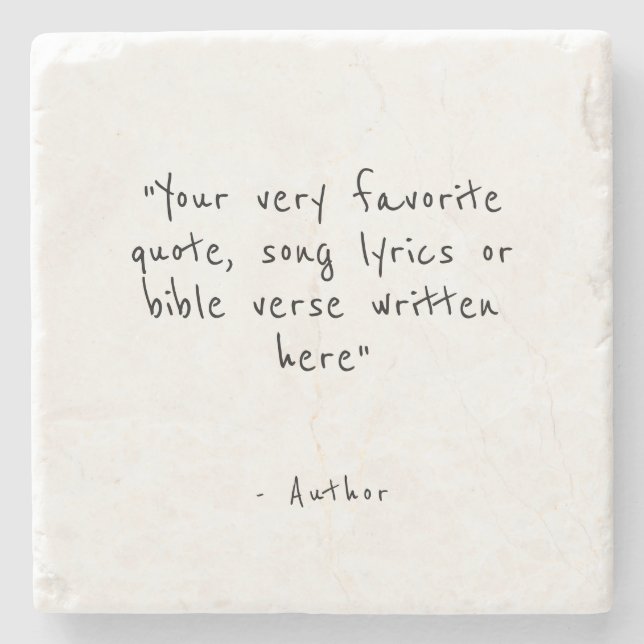 "Your very favorite
quote, song lyrics or
bible verse written
here"
- Author